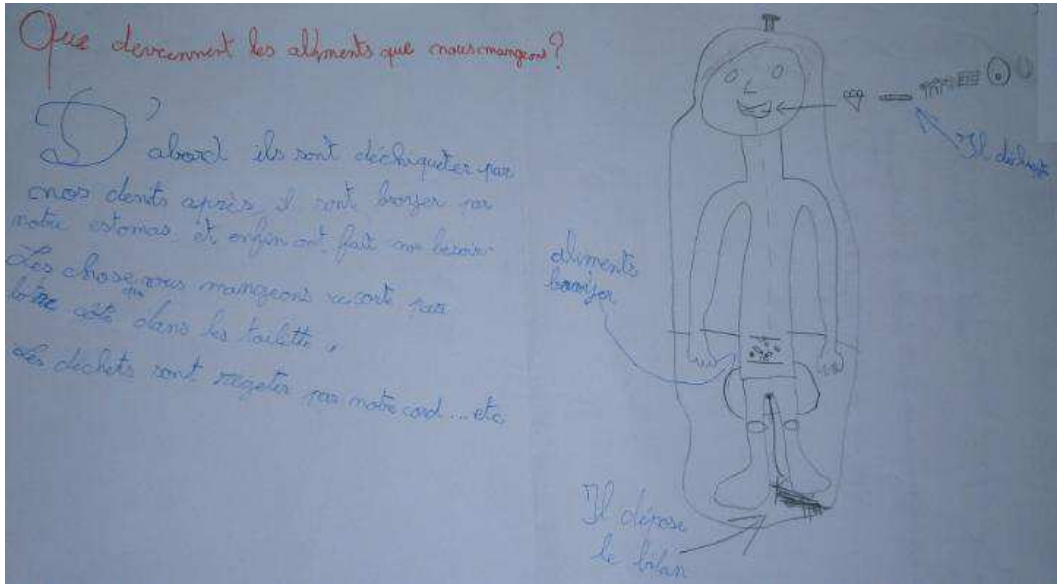 Que deviennent les aliments que nous mangeons?
D'abord ils sont déchiqueter par
nos dents après il sont broyer par
notre estomas. et enfin ont fait nos besoin
Les chose que nous mangeons resort par
l'autre côté dans les toilette,
Les dechets sont regeter par notre cord...etc
Il déchiquete
aliments
broyer
Il dépose
le bilan